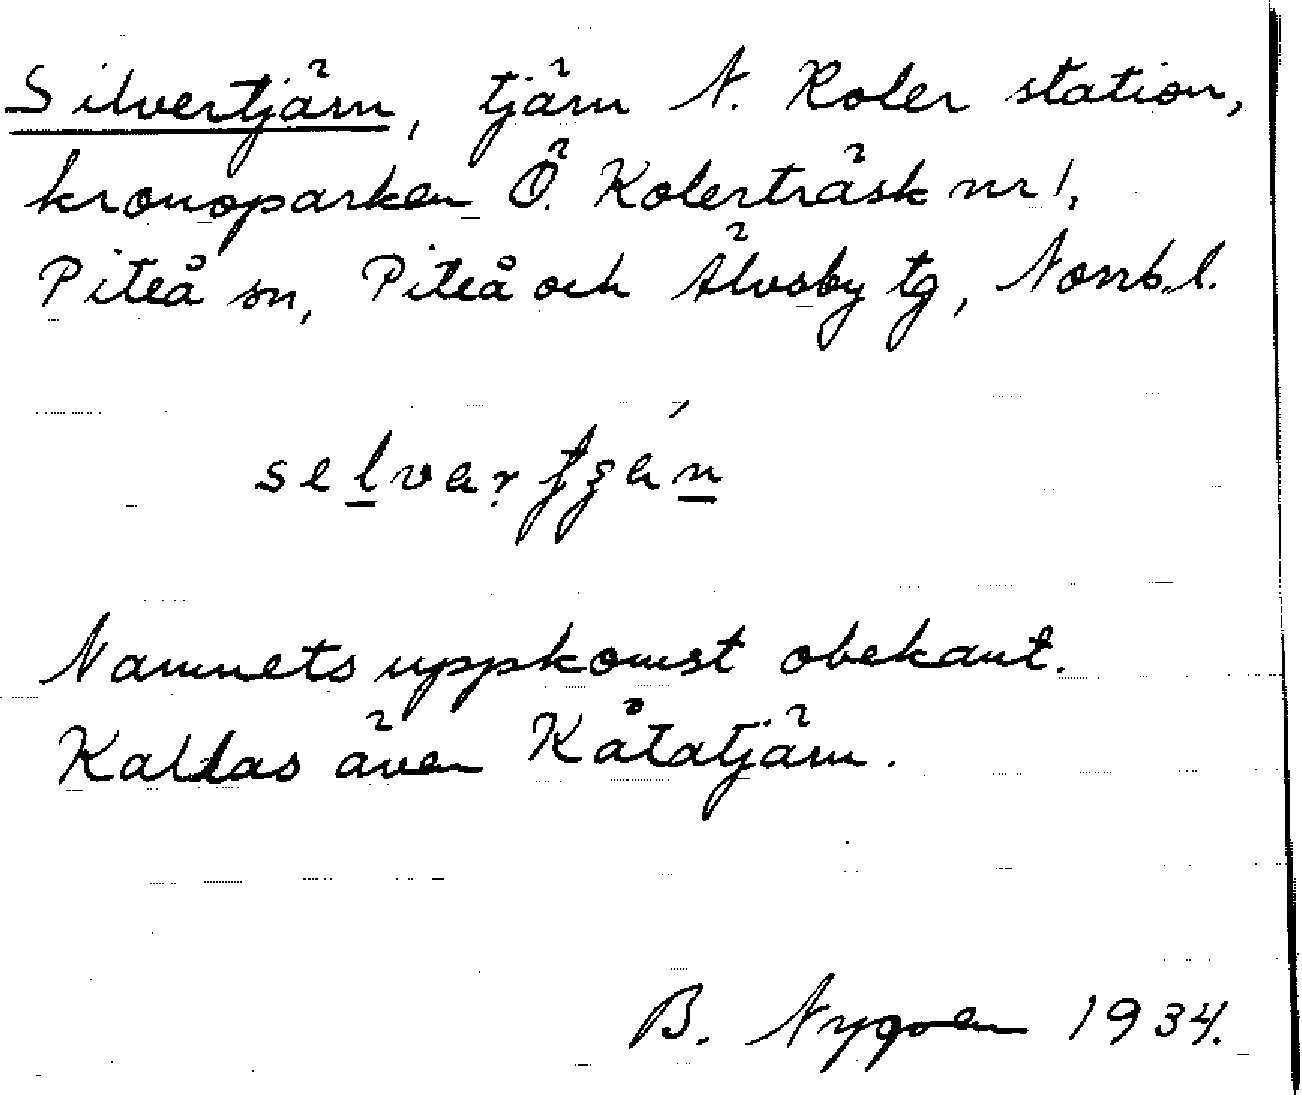 Silvertjärn, tjärn N. Koler station,
kronoparken Ö. Kolerträsk nr 1,
Piteå sn, Piteå och Älvsby tg, Norrb.l.
Namnets uppkomst obekant.
Kallas även Kåtatjärn.
B. Nygren 1934.